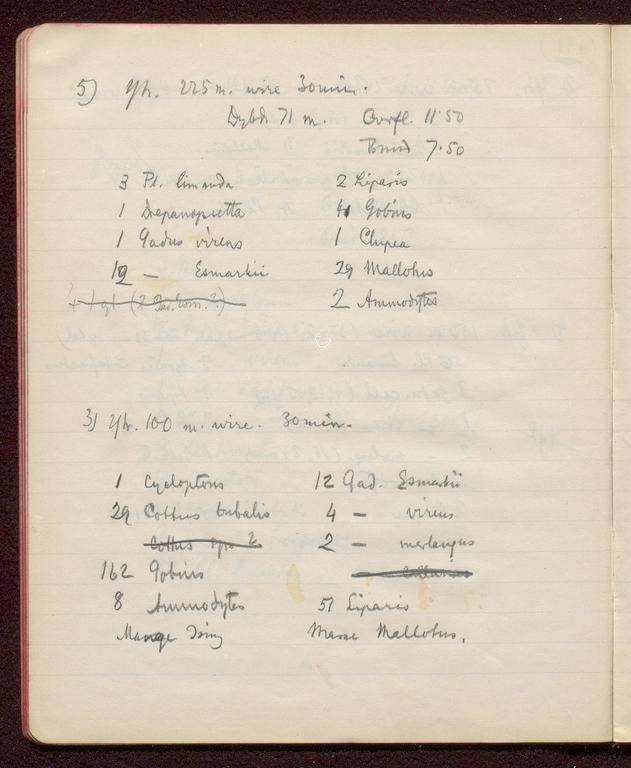 5) Yh. 225 m. wire 30 min.
Dybd 71 m. Overfl. 11.50
Bund 7.50
3 Pl. limanda 2 Liparis
1 Drepanopsetta 41 Gobius
1 Gadus virens 1 Clupea
12 — Esmarkii 29 Mallotus
2 Ammodytes
3) Yh. 100 m. wire. 30 min.
1 Cycloptorus 12 Gad. Esmarkii
29 Cottus bubalis 4 — virens
Cottus spe ? 2 — merlangus
162 Gobius
8 Ammodytes 51 Liparis
Mange Masse Mallotus.